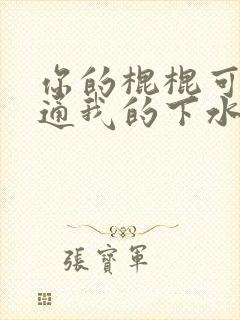 你的棍棍可
通我的下水
張寶軍